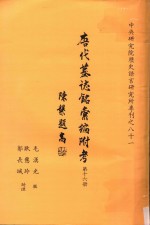 中央研究院歷史語言研究所專刊之八十一
唐代墓誌銘彙編附考
第十六冊
陳槃題耑
毛漢光 撰
耿慧玲
郭長城